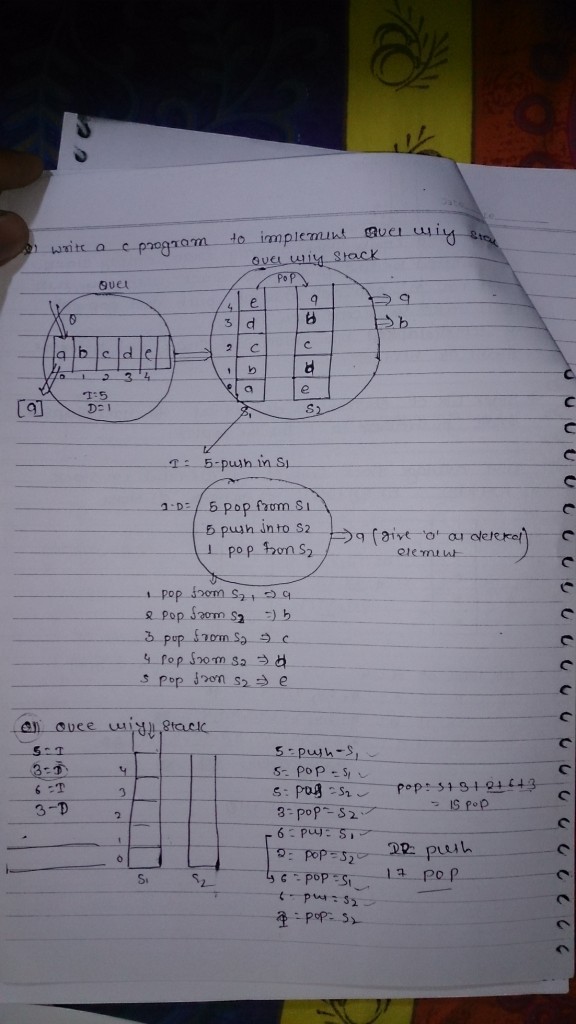 Q) write a c program to implement Quel wiy stack
Quel wiy stack
Quel
POP
4 e a ⇒ a
3 d b ⇒ b
2 c c
1 b d
0 a e
S1 S2
a b c d e
0 1 2 3 4
I=5
D=1
[a]
I = 5-push in S1
1-D= 5 pop from S1
5 push into S2
1 pop from S2
⇒ a (give 'a' as deleted element
1 pop from S2 ⇒ a
2 pop from S2 ⇒ b
3 pop from S2 ⇒ c
4 pop from S2 ⇒ d
5 pop from S2 ⇒ e
Q1) Quee wiy stack
5=I
3=D
6=I
3-D
4
3
2
1
0
S1 S2
5=push-S1
5-POP=S1
5=pus=S2
3=pop-S2
6=pus=S1
2=pop=S2
6=pop=S1
6-pus=S2
1=pop=S2
pop=5+3+2+6+3
= 15 pop
22 push
17 pop